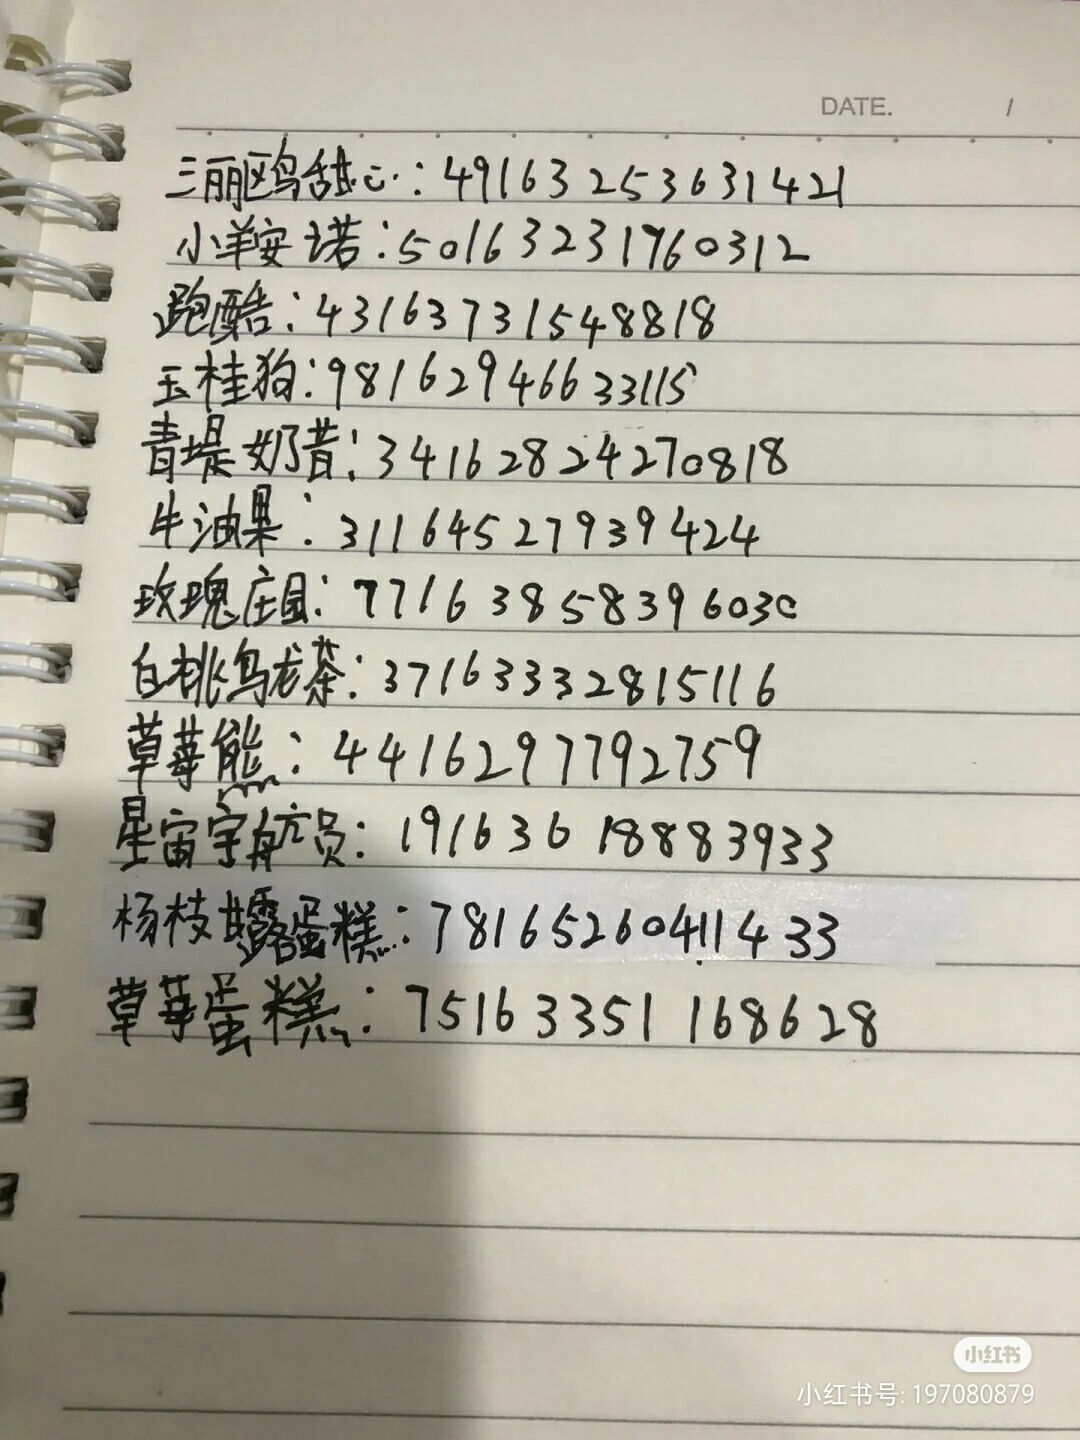 DATE. /
三丽鸥甜心：49163253631421
小羊安诺：50163231760312
跑酷：43163731548818
玉桂狗：98162946633115
青堤奶昔：34162824270818
牛油果：31164527939424
玫瑰庄园：77163858396030
白桃乌龙茶：37163332815116
草莓熊：44162977792759
星宙宇航员：19163618883933
杨枝甘露蛋糕：78165260411433
草莓蛋糕：75163351168628
小红书
小红书号: 197080879